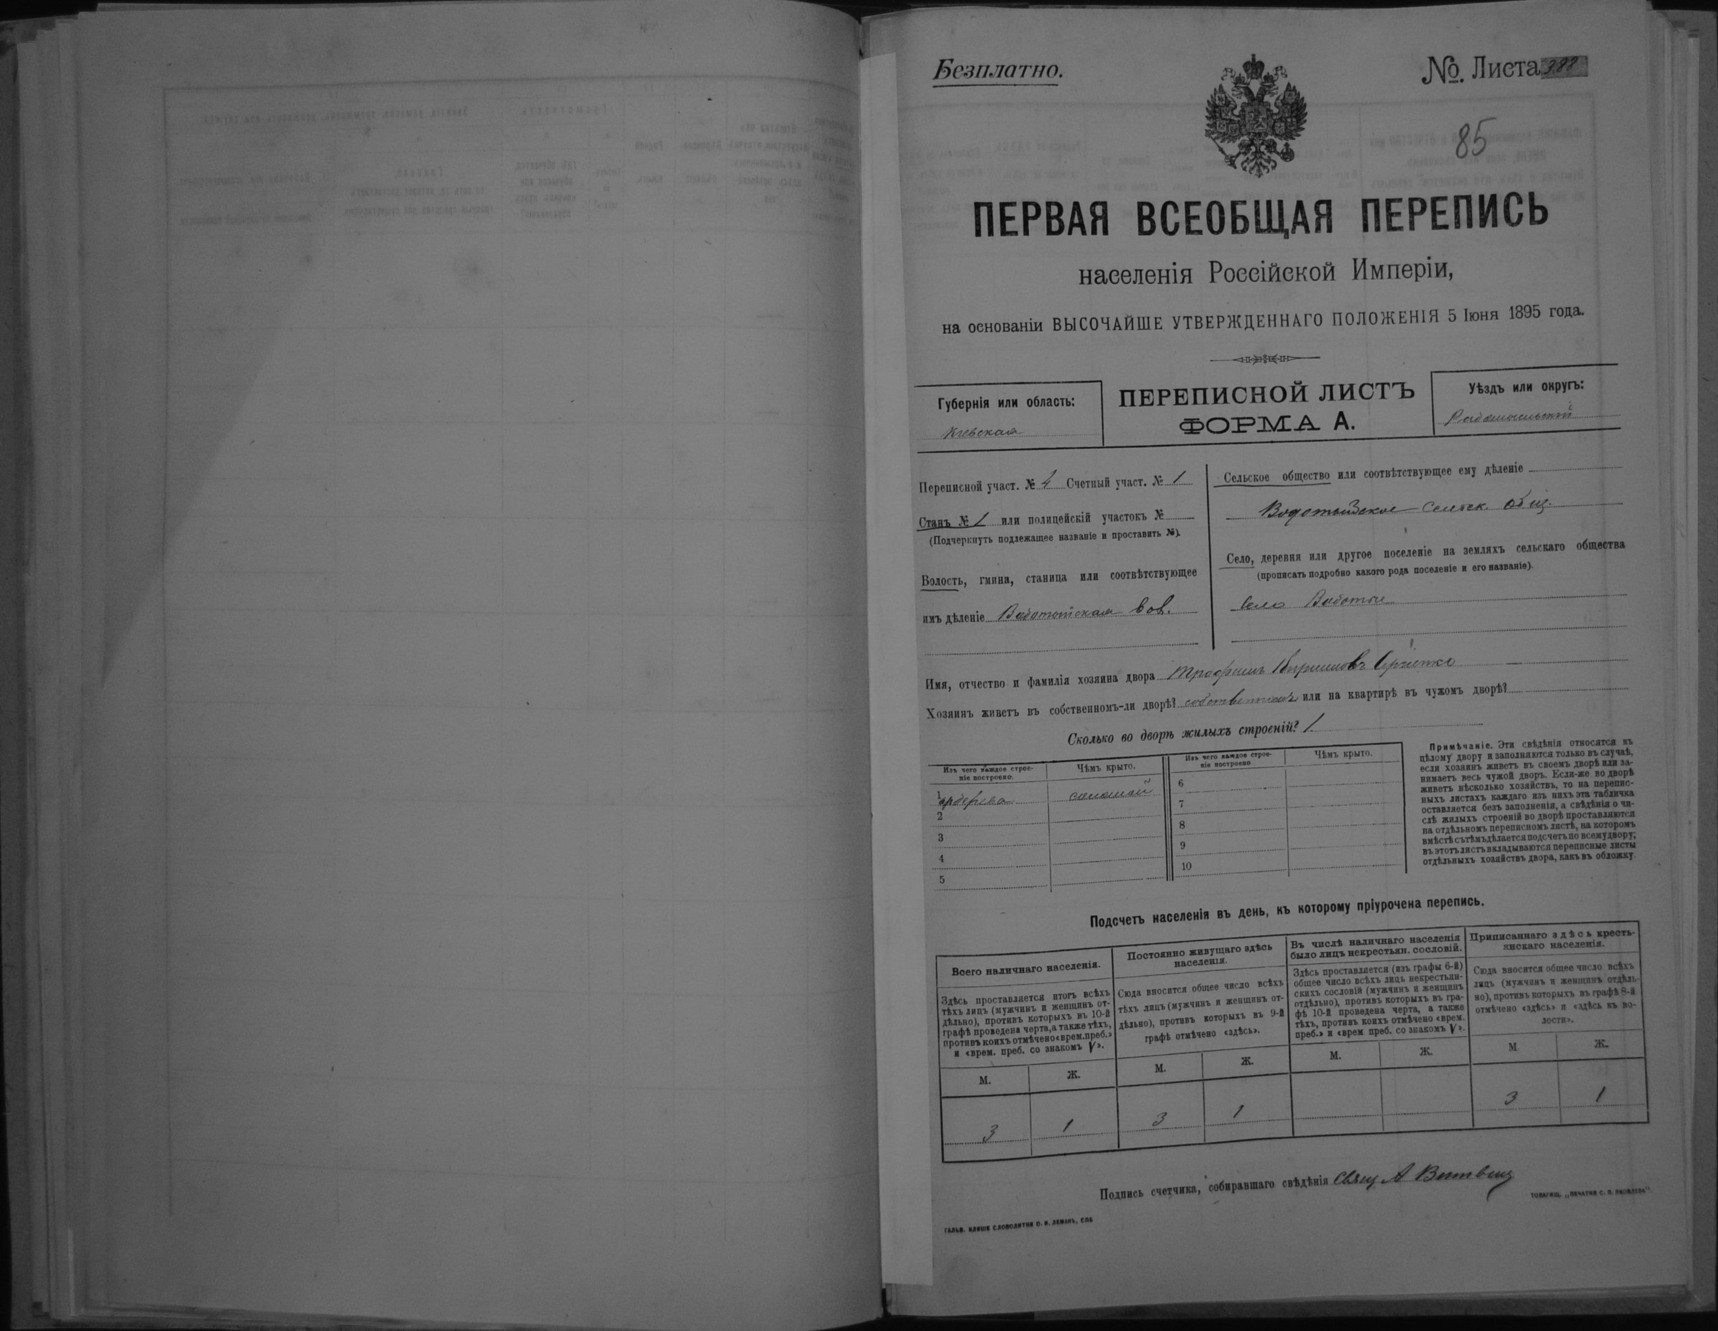 Безплатно.
№. Листа
85
ПЕРВАЯ ВСЕОБЩАЯ ПЕРЕПИСЬ
населенія Россійской Имперіи,
на основаніи ВЫСОЧАЙШЕ УТВЕРЖДЕННАГО ПОЛОЖЕНІЯ 5 Іюня 1895 года.
Губернія или область:
Кіевская
ПЕРЕПИСНОЙ ЛИСТЪ
ФОРМА А.
Уѣздъ или округъ:
Радомысльскій
Переписной участ. № 4 Счетный участ. № 1
Станъ № 1 или полицейскій участокъ №
(Подчеркнуть подлежащее названіе и проставить №).
Волость, гмина, станица или соотвѣтствующее
имъ дѣленіе Водотыйская вол.
Сельское общество или соотвѣтствующее ему дѣленіе
Водотыйское сельск. общ.
Село, деревня или другое поселеніе на земляхъ сельскаго общества
(прописать подробно какого рода поселеніе и его названіе).
село Водотыи
Имя, отчество и фамилія хозяина двора Трофимъ
Хозяинъ живетъ въ собственномъ-ли дворѣ? собственномъ или на квартирѣ въ чужомъ дворѣ?
Сколько во дворѣ жилыхъ строеній? 1
Изъ чего каждое строе-
ніе построено.
Чѣмъ крыто.
Изъ чего каждое строе-
ніе построено
Чѣмъ крыто.
1 дерева соломой
2
3
4
5
6
7
8
9
10
Примѣчаніе. Эти свѣдѣнія относятся къ
цѣлому двору и заполняются только въ случаѣ,
если хозяинъ живетъ въ своемъ дворѣ или за-
нимаетъ весь чужой дворъ. Если-же во дворѣ
живетъ нѣсколько хозяйствъ, то на перепис-
ныхъ листахъ каждаго изъ нихъ эта табличка
оставляется безъ заполненія, а свѣдѣнія о чи-
слѣ жилыхъ строеній во дворѣ проставляются
на отдѣльномъ переписномъ листѣ, на которомъ
вмѣстѣ съ тѣмъ дѣлается подсчетъ по всему двору;
въ этотъ листъ вкладываются переписные листы
отдѣльныхъ хозяйствъ двора, какъ въ обложку.
Подсчетъ населенія въ день, къ которому пріурочена перепись.
Всего наличнаго населенія.
Здѣсь проставляется итогъ всѣхъ
тѣхъ лицъ (мужчинъ и женщинъ от-
дѣльно), противъ которыхъ въ 10-й
графѣ проведена черта, а также тѣхъ,
противъ коихъ отмѣчено «врем. преб.»
и «врем. преб. со знакомъ V».
Постоянно живущаго здѣсь
населенія.
Сюда вносится общее число всѣхъ
тѣхъ лицъ (мужчинъ и женщинъ от-
дѣльно), противъ которыхъ въ 9-й
графѣ отмѣчено «здѣсь».
Въ числѣ наличнаго населенія
было лицъ некрестьян. сословій.
Здѣсь проставляется (изъ графы 6-й)
общее число всѣхъ лицъ некрестьян-
скихъ сословій (мужчинъ и женщинъ
отдѣльно), противъ которыхъ въ гра-
фѣ 10-й проведена черта, а также
тѣхъ, противъ коихъ отмѣчено «врем.
преб.» и «врем. преб. со знакомъ V».
Приписаннаго здѣсь кресть-
янскаго населенія.
Сюда вносится общее число всѣхъ
лицъ (мужчинъ и женщинъ отдѣль-
но), противъ которыхъ въ графѣ 8-й
отмѣчено «здѣсь» и «здѣсь въ во-
лости».
М. Ж. М. Ж. М. Ж. М. Ж.
3 1 3 1 3 1
Подпись счетчика, собиравшаго свѣдѣнія Свящ А
ГАЛЬВ. КЛИШЕ СЛОВОЛИТНИ О. И. ЛЕМАНЪ, СПБ
ТОВАРИЩ. „ПЕЧАТНЯ С. П. ЯКОВЛЕВА“.